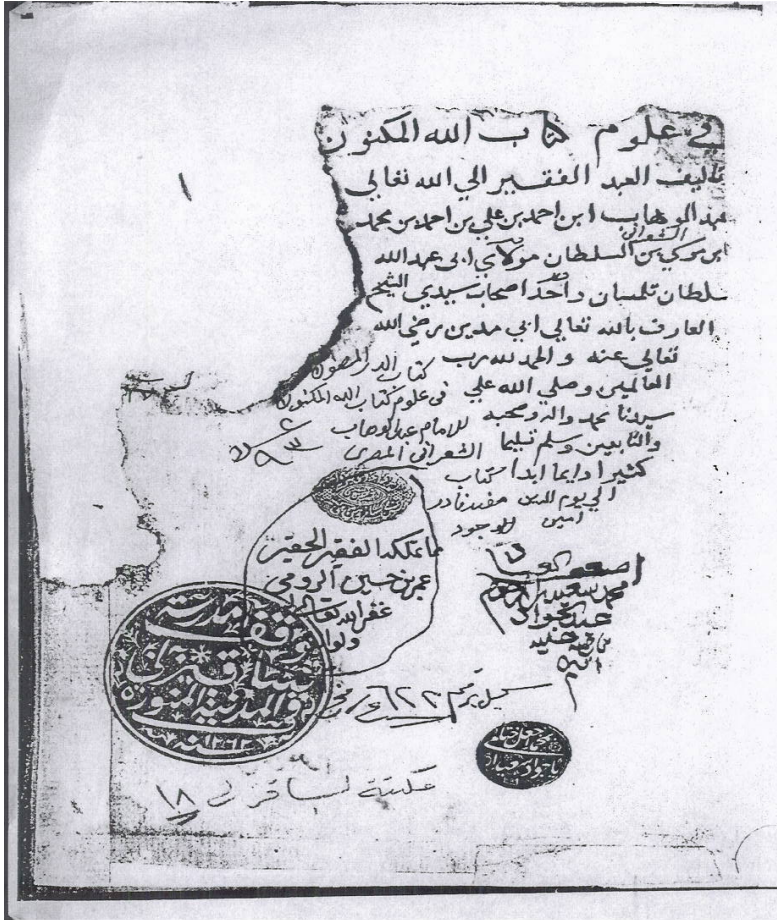 في علوم كتاب الله المكنون
تاليف العبد الفقير الي الله تعالي
عبد الوهاب ابن احمد بن علي بن احمد بن محمد
الشعراني
ابن موكي بن السلطان مولاي ابي عبد الله
سلطان تلمسان واحد اصحاب سيدي الشيخ
العارف بالله تعالي ابي مدين رضي الله
تعالي عنه والحمد لله رب
العالمين وصلي الله علي
سيدنا محمد واله وصحبه
والتابعين وسلم تسليما
كثيرا دايما ابدا
الي يوم الدين
امين
كتاب الدر المصون
في علوم كتاب الله المكنون
للامام عبد الوهاب
الشعراني المصري
كتاب
مفيد نادر
الوجود
مما تملكه الفقير الحقير
عمر بن حسين الرومي
غفر الله
محمد سعيد
وقف مدرسة
في المدينة المنورة
سنه
مكتبة
١٨